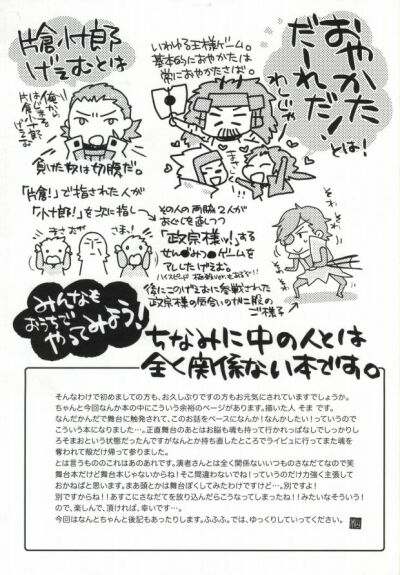 おやかた
だーれだ!
とは!
わしじゃ
いわゆる王様ゲーム。
基本的におやかたは
常におやかたさば。
片倉小十郎
げえむとは
俺から
はじまる
片倉小十郎
げえむ
負けた奴は切腹だ。
「片倉!」で指された人が
「小十郎!」を次に指し→
その人の両脇2人が
おぐしを直しつつ
「政宗様ッ!」する
せん●みつ●ゲームを
アレしたげえむ。
まさむね
さま!
後にこのげえむに参戦された
政宗様の気合いのガニ股の
ご様子
みんなも
おうちで
やってみよう!
ちなみに中の人とは
全く関係ない本です。
そんなわけで初めましての方も、お久しぶりですの方もお元気にされていますでしょうか。
ちゃんと今回なんか本の中にこういう余裕のページがあります。描いた人 そま です。
なんだかんだで舞台に触発されて、このお話をベースになんか!なんかしたい!っていうので
こういう本になりました…。正直舞台のあとはお脳も魂も持って行かれっぱなしでしっかりし
ろそまおという状態だったんですがなんとか持ち直したところでライビュに行ってまた魂を
奪われて殻だけ帰って参りました。
とは言うもののこれはあのあれです。演者さんとは全く関係ないいつものさなだてなので笑
舞台本だけど舞台本じゃないからね!そこ間違わないでね!っていうのだけ力強く主張して
おかねばと思います。まあ頭とかは舞台ぽくしてみたわけですけど…。別ですよ!
別ですからね!!あすこにさなだてを放り込んだらこうなってしまったね!!みたいなそういう!
ので、楽しんで、頂ければ、幸いです…。
今回はなんとちゃんと後記もあったりします。ふふふ。では、ゆっくりしていってください。